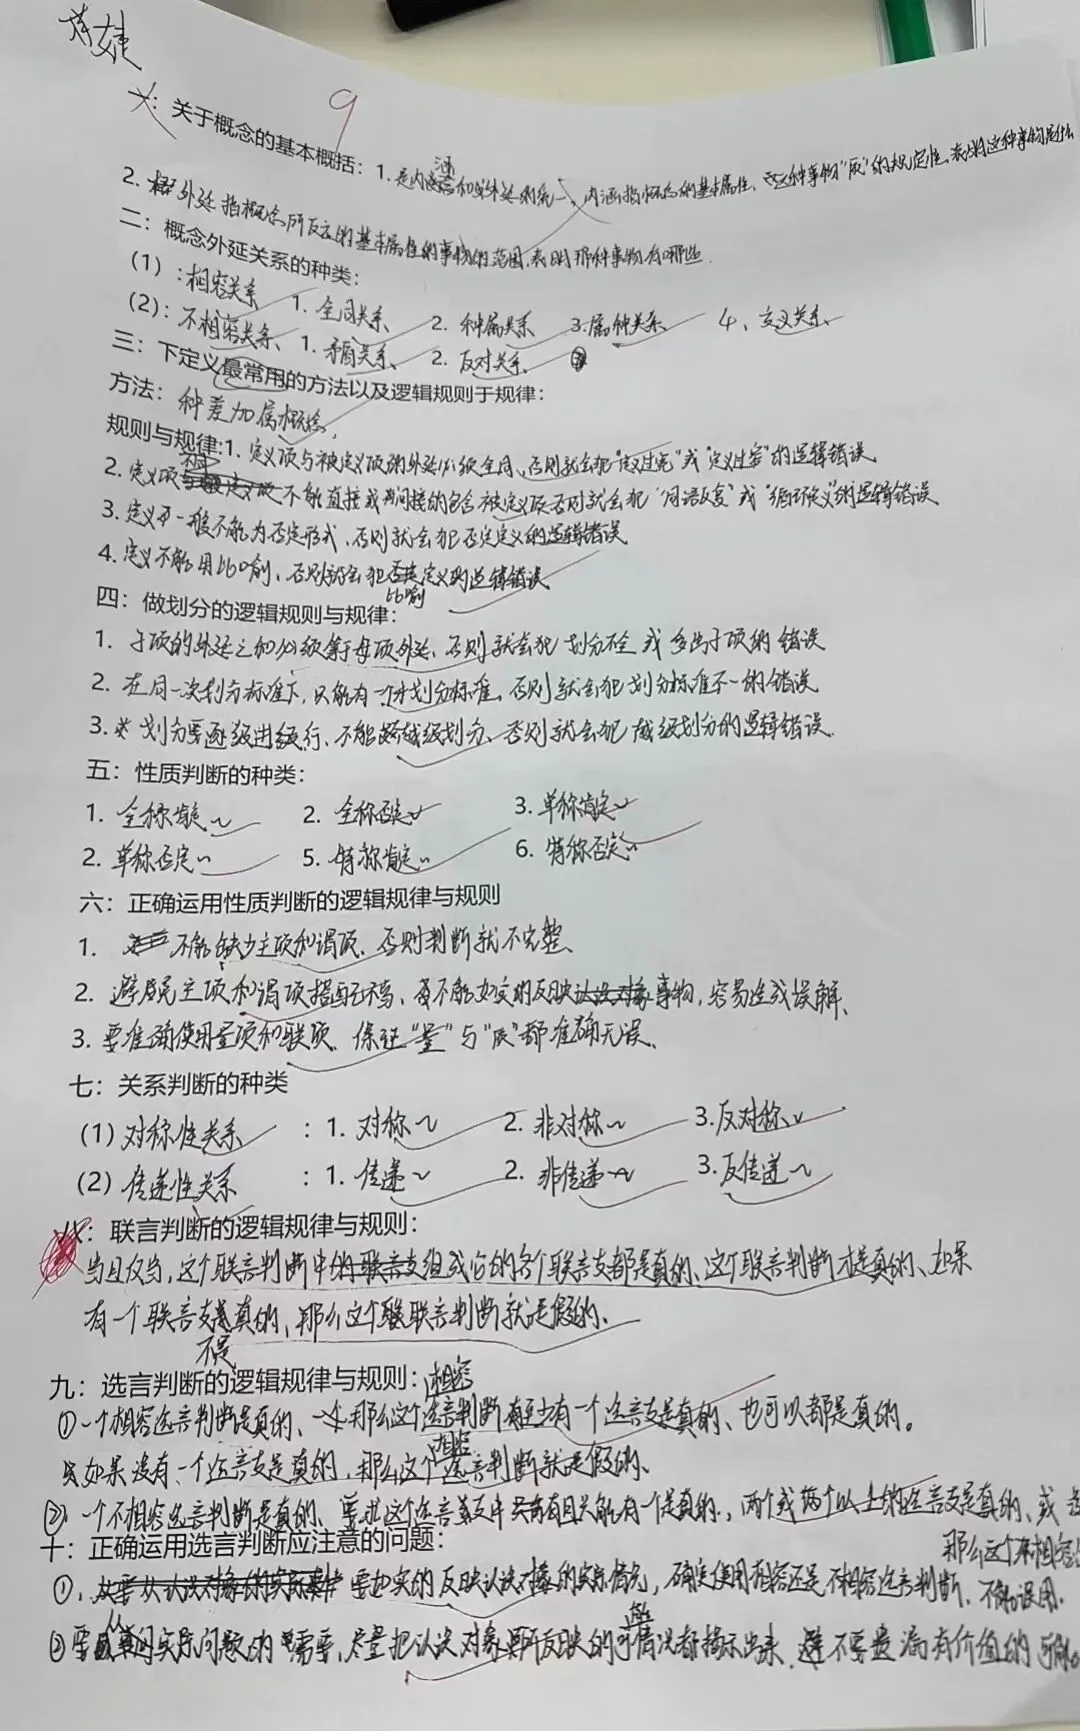 9
一：关于概念的基本概括：1.是内涵和外延的统一，内涵指概念的基本属性、这种事物"质"的规定性、表明这种事物是什么
2. 外延指概念所反应的基本属性的事物的范围，表明那种事物有哪些.
二：概念外延关系的种类：
(1)：相容关系 1. 全同关系、 2. 种属关系 3.属种关系 4、交叉关系、
(2)：不相容关系、 1. 矛盾关系、 2. 反对关系、
三：下定义最常用的方法以及逻辑规则于规律：
方法：种差加属概念，
规则与规律:1. 定义项与被定义项的外延必须全同、否则就会犯"定义过宽"或"定义过窄"的逻辑错误
2. 定义项不能直接或间接的包含被定义项否则就会犯"同语反复"或"循环定义"的逻辑错误
3. 定义一般不能为否定形式、否则就会犯否定定义的逻辑错误
4. 定义不能用比喻、否则就会犯比喻定义的逻辑错误
四：做划分的逻辑规则与规律：
1. 子项的外延之和必须等于母项外延、否则就会犯划分不全或多出子项的错误
2. 在同一次划分标准下，只能有一个划分标准、否则就会犯划分标准不一的错误
3. 划分要逐级进行、不能越级划分、否则就会犯越级划分的逻辑错误.
五：性质判断的种类：
1. 全称肯定～ 2. 全称否定～ 3. 单称肯定～
2. 单称否定～ 5. 特称肯定～ 6. 特称否定～
六：正确运用性质判断的逻辑规律与规则
1. 不能缺少主项和谓项、否则判断就不完整、
2. 避免主项和谓项搭配不当、不能如实的反映事物，容易造成误解、
3. 要准确使用量项和联项、保证"量"与"质"都准确无误、
七：关系判断的种类
(1) 对称性关系：1. 对称～ 2. 非对称～ 3.反对称～
(2) 传递性关系：1. 传递～ 2. 非传递～ 3.反传递～
八：联言判断的逻辑规律与规则：
当且仅当，这个联言判断中的各个联言支都是真的、这个联言判断才是真的、如果
有一个联言支不是真的，那么这个联言判断就是假的、
九：选言判断的逻辑规律与规则：
①一个相容选言判断是真的、那么这个相容选言判断至少有一个选言支是真的、也可以都是真的。
如果没有一个选言支是真的，那么这个相容选言判断就是假的、
②、一个不相容选言判断是真的、要求这个选言支中有且只能有一个是真的，两个或两个以上的选言支是真的、或
那么这个不相容
十：正确运用选言判断应注意的问题：
①，要如实的反映认识对象的实际情况，确定使用相容还是不相容选言判断，不能误用.
②要从实际问题的需要，尽量把认识对象所反映的可能情况都揭示出来，不要遗漏有价值的可能